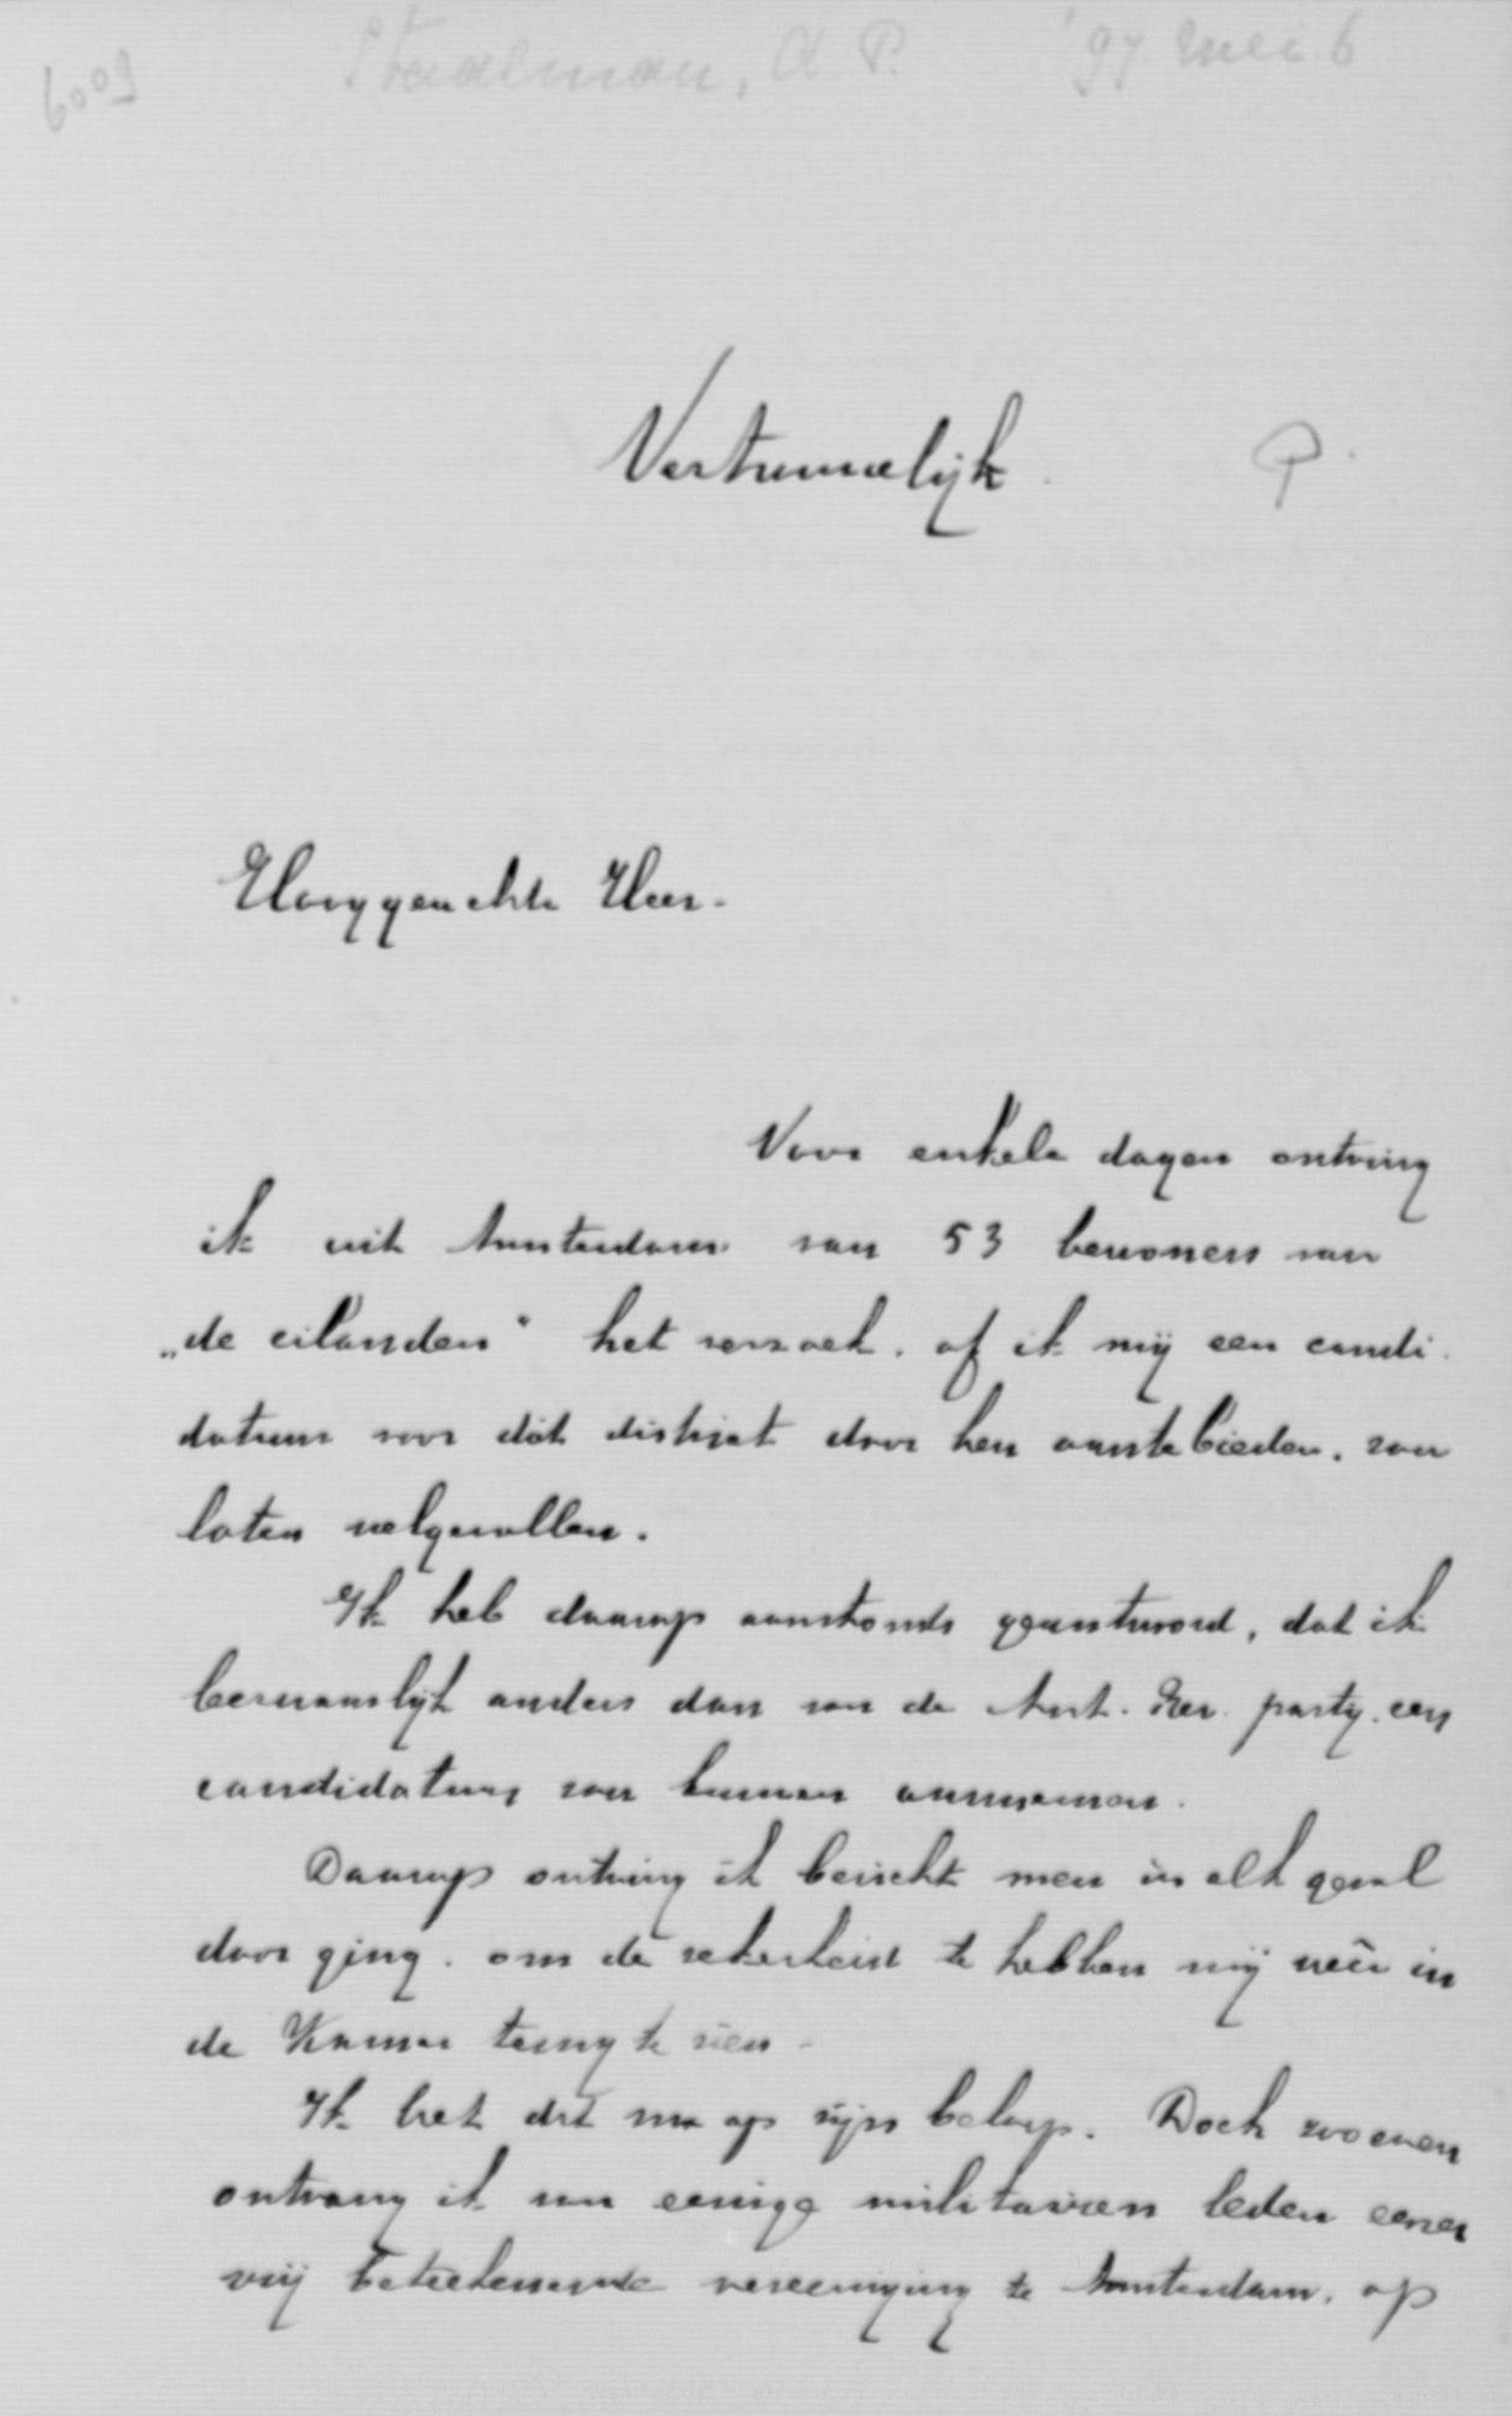 6009
Staalman, A. P. '97 Mei 6
Vertrouwelijk.
Hooggeachte Heer.
Voor enkele dagen ontving
ik uit Amsterdam van 53 bewoners van
„de eilanden" het verzoek, of ik mij een candi-
datuur voor dat district door hen aantebieden, zou
laten welgevallen.
Ik heb daarop aanstonds geantwoord, dat ik
bezwaarlijk anders dan van de Ant. Rev. party, een
candidatuur zou kunnen aannemen.
Daarop ontving ik bericht men in elk geval
door ging, om de zekerheid te hebben mij weêr in
de Kamer terug te zien.
Ik liet dit nu op zijn beloop. Doch zooeven
ontvang ik van eenige militairen leden eener
vrij beteekenende vereeniging te Amsterdam, op